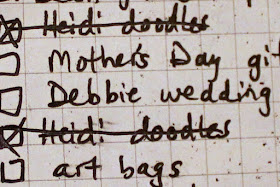 Heidi doodles
Mother's Day gi
Debbie wedding
Heidi doodles
art bags